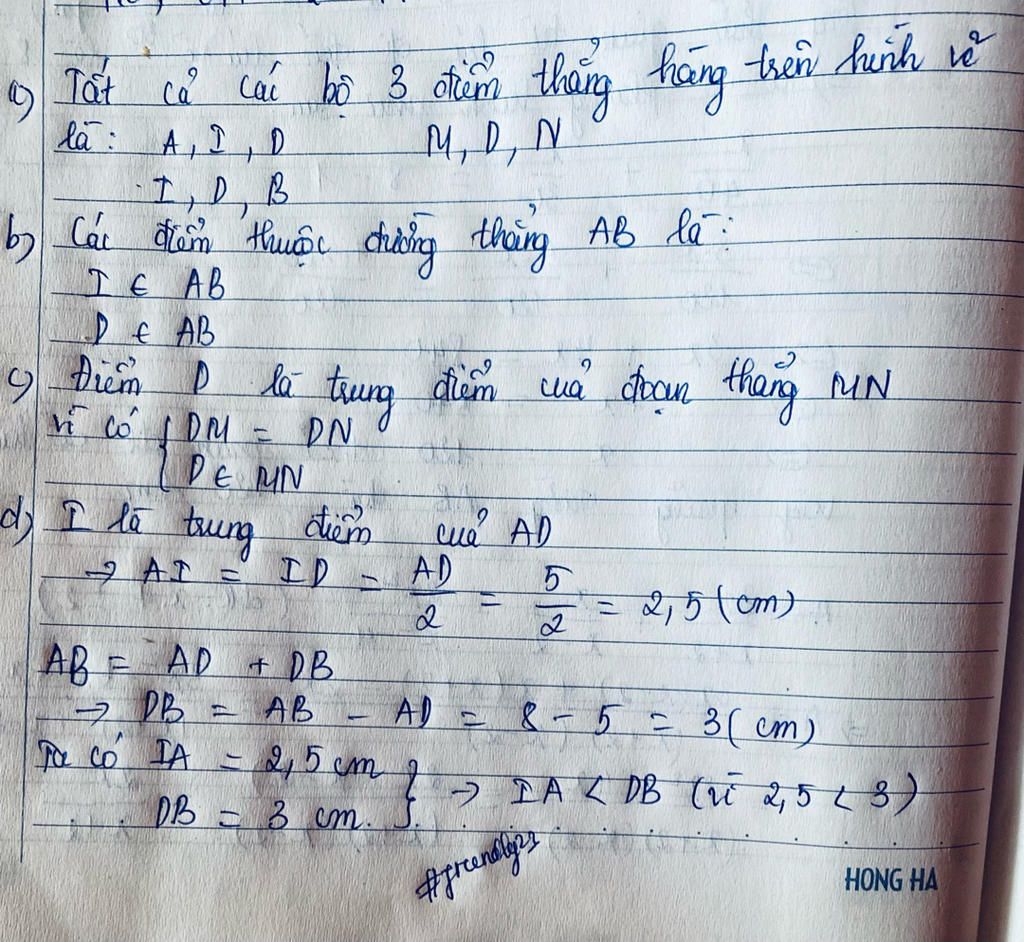 a) Tất cả các bộ 3 điểm thẳng hàng trên hình vẽ
là: A, I, D M, D, N
I, D, B
b) Các điểm thuộc đường thẳng AB là:
I ∈ AB
D ∈ AB
c) Điểm D là trung điểm của đoạn thẳng MN
vì có { DM = DN
{ D ∈ MN
d) I là trung điểm của AD
→ AI = ID = AD/2 = 5/2 = 2,5 (cm)
AB = AD + DB
→ DB = AB - AD = 8 - 5 = 3 (cm)
Ta có IA = 2,5 cm } → IA < DB (vì 2,5 < 3)
DB = 3 cm. }
HONG HA